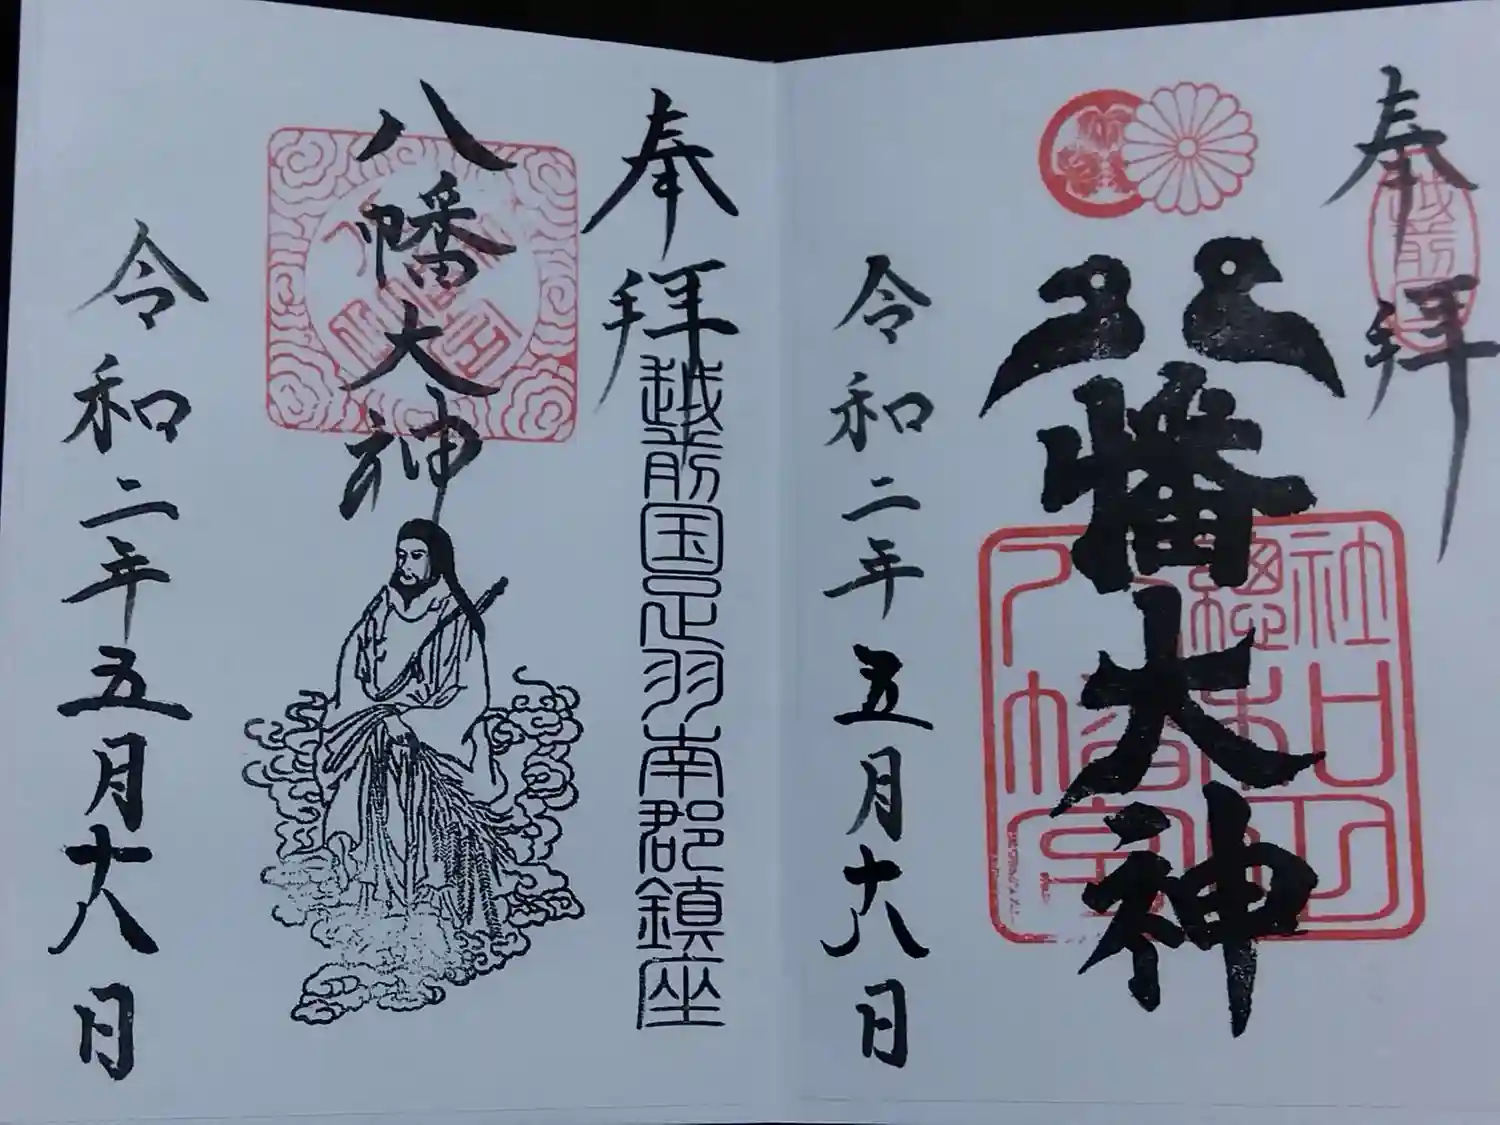 奉拝
越前
八幡大神
社口
總社
八幡宮
令和二年五月十八日
奉拝
越前国足羽南郡鎮座
八幡大神
令和二年五月十八日